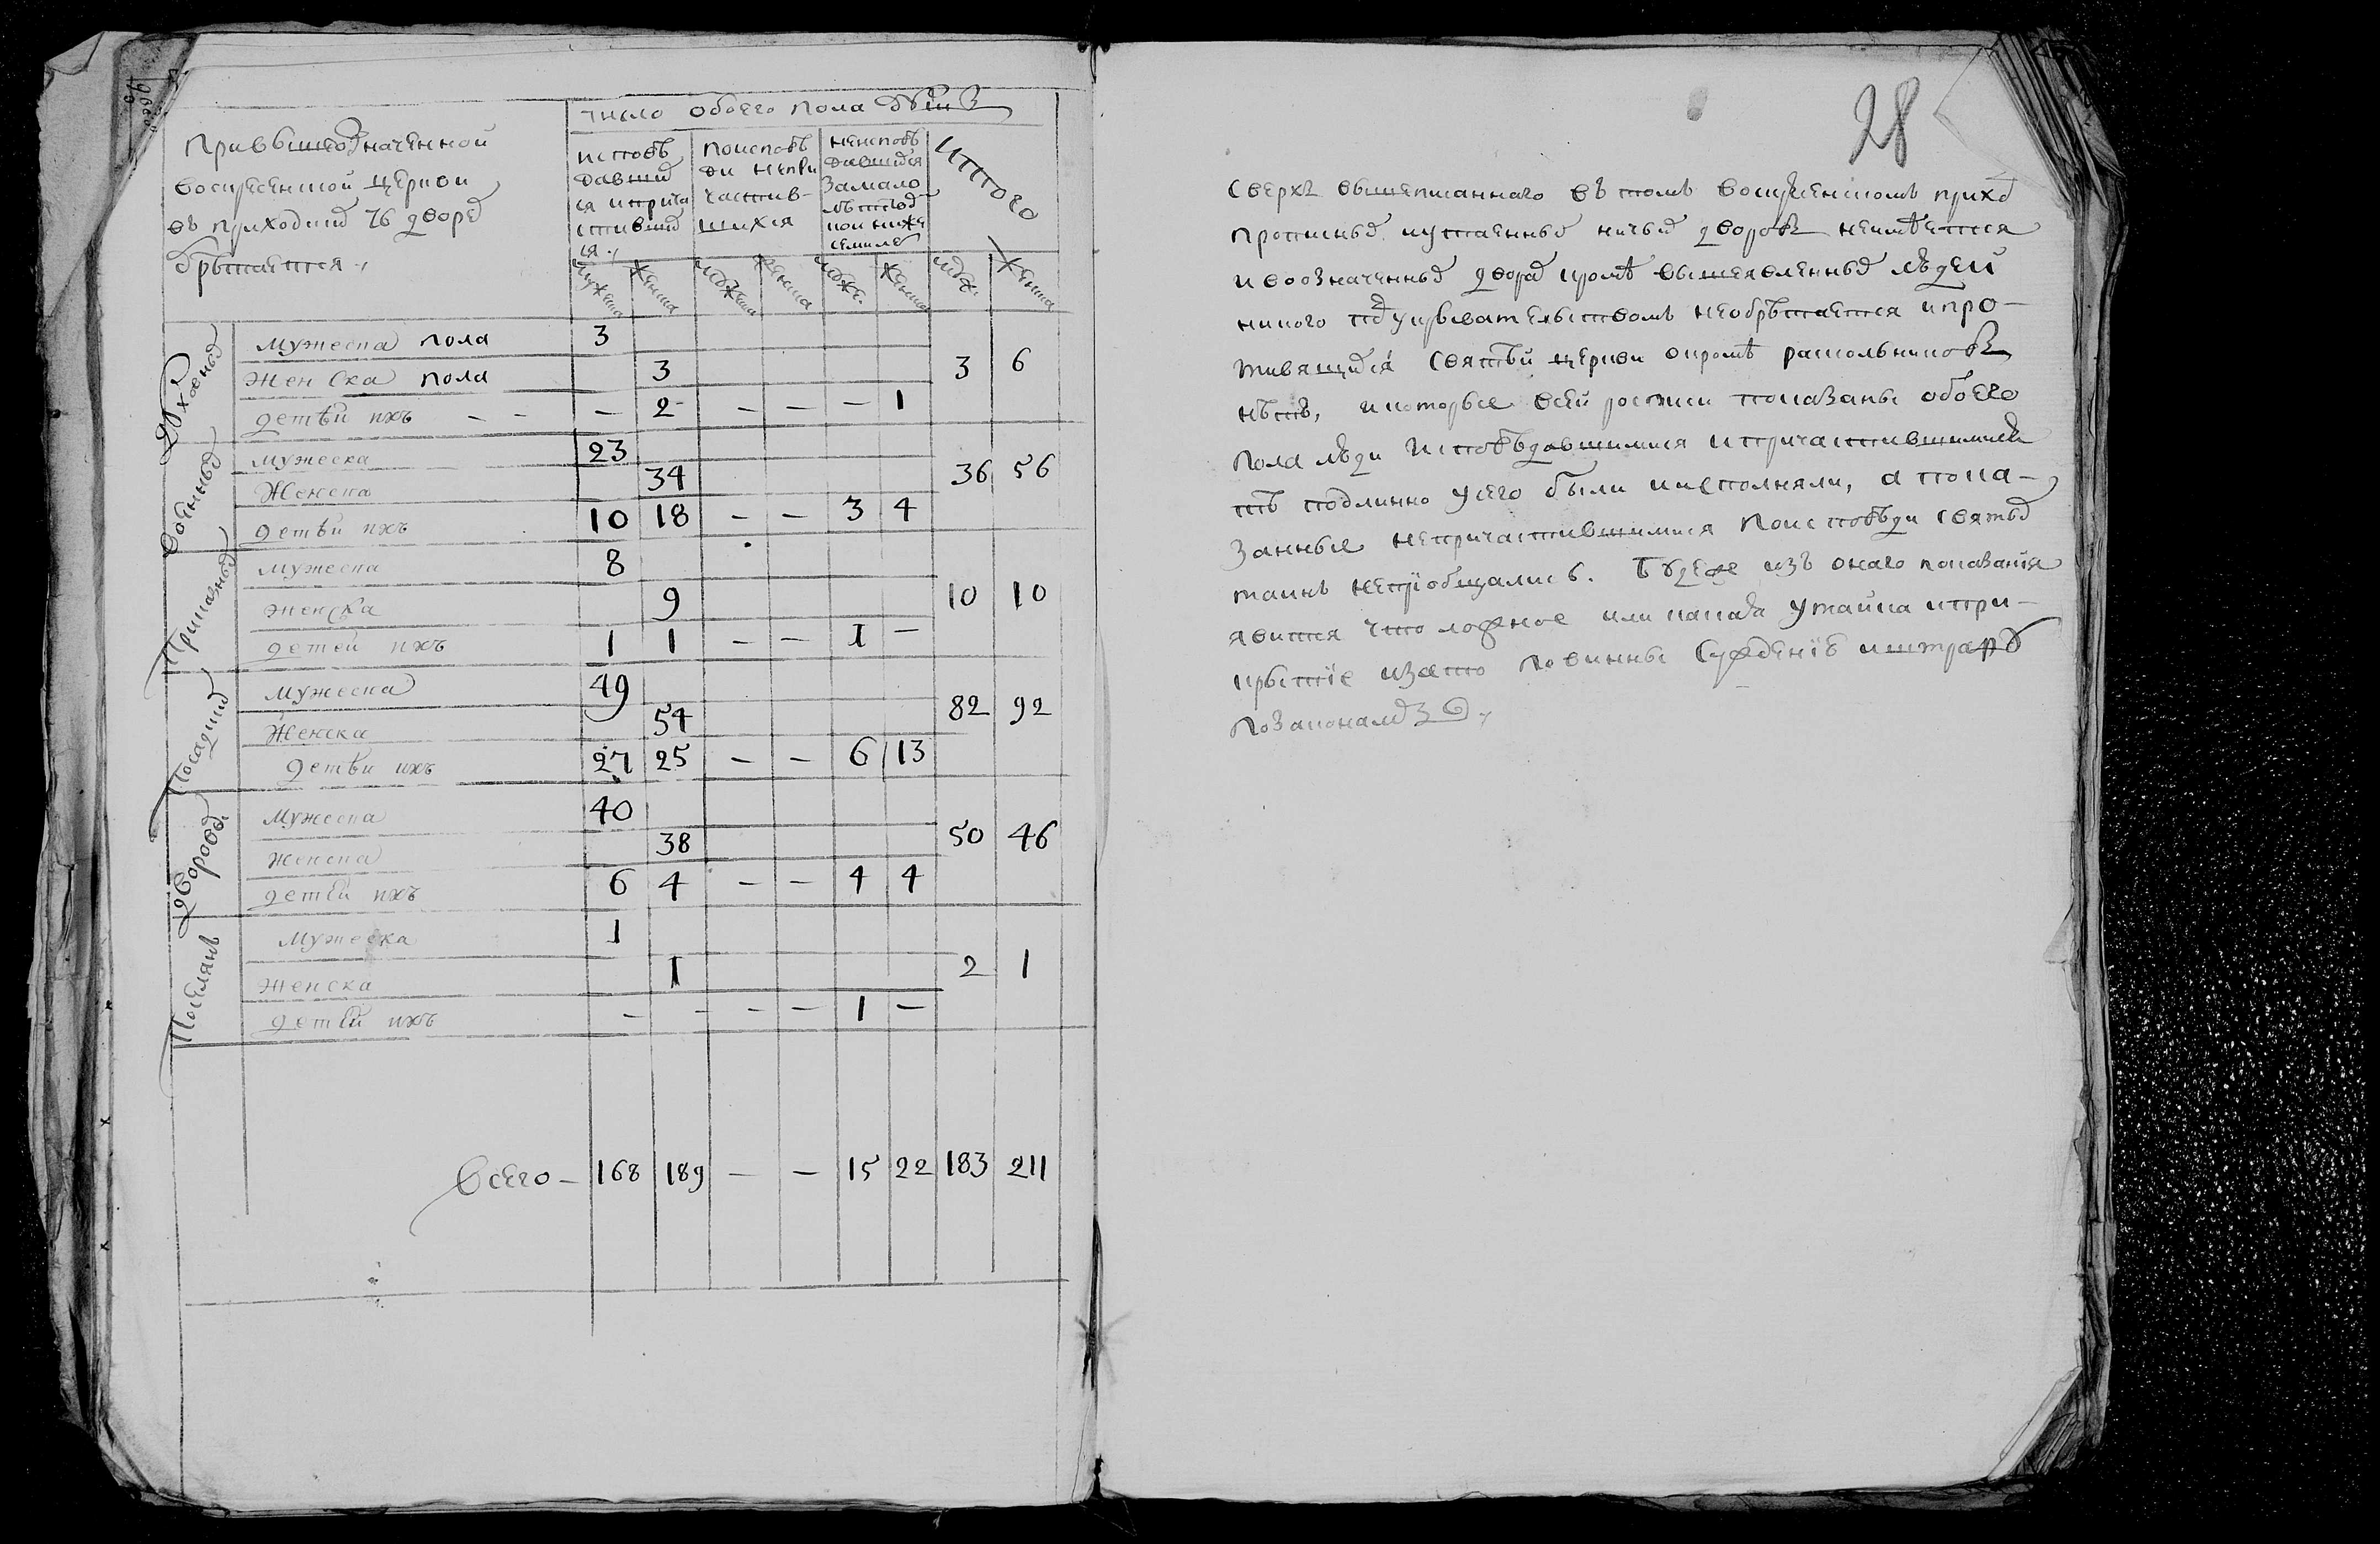 При вышеозначенной
воскресенской церкви
въ приходских 76 дворех
обретается
число обоего пола людей
исповѣ
давших
ся и прича
стивших
ся
по исповѣ
ди непри
частив-
шихся
неисповѣ
давшихся
за мало
лѣтством
Итого
мужеска женска мужеска женска муже. женска муже. женска
Духовных
мужеска пола 3
женска пола 3 3 6
детѣй ихъ - - - 2 - - - 1
Военных
мужеска 23
женска 34 36 56
детѣй ихъ 10 18 - - 3 4
Приказных
мужеска 8
женска 9 10 10
детей ихъ 1 1 - - 1 -
Посадских
мужеска 49
женска 54 82 92
детѣй ихъ 27 25 - - 6 13
Дворовых
мужеска 40
женска 38 50 46
детѣй ихъ 6 4 - - 4 4
Поселянъ
мужеска 1
женска 1 2 1
детѣй ихъ - - - - 1 -
всего - 168 189 - - 15 22 183 211
28
сверхъ вышеписанного въ томъ воскресенскомъ приход
прописных и утаенных ничьих дворовъ неимѣется
и в означенных дворах кромѣ вышеявленных людей
никого под укрывательствомъ необрѣтается и про-
тивящихся святѣй церкви окромѣ раскольниковъ
нѣтъ, и которые в сей росписи показаны обоего
пола люди исповѣдавшимися и причастившимися
тѣ подлинно у сего были и исполняли, а пока-
занные непричастившимися по исповѣди святых
таинъ непріобщались. Буде же изъ оного показанія
явится что ложное или какая утайка и при-
крытіе и за то повинны суждению и штрафу
по законам